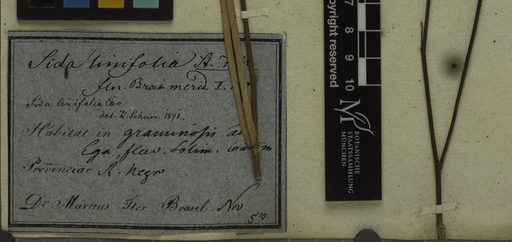 Sida linifolia
flor. Bras. merid. I.
Sida linifolia Cav.
det. K. Schum 1891.
Habitat in graminosis
Ega fluv. Solim.
Provinciae R. Negro
Dr Martius Iter Brasil. Nov
copyright reserved
7 8 9 10
M
BOTANISCHE
STAATSSAMMLUNG
MÜNCHEN